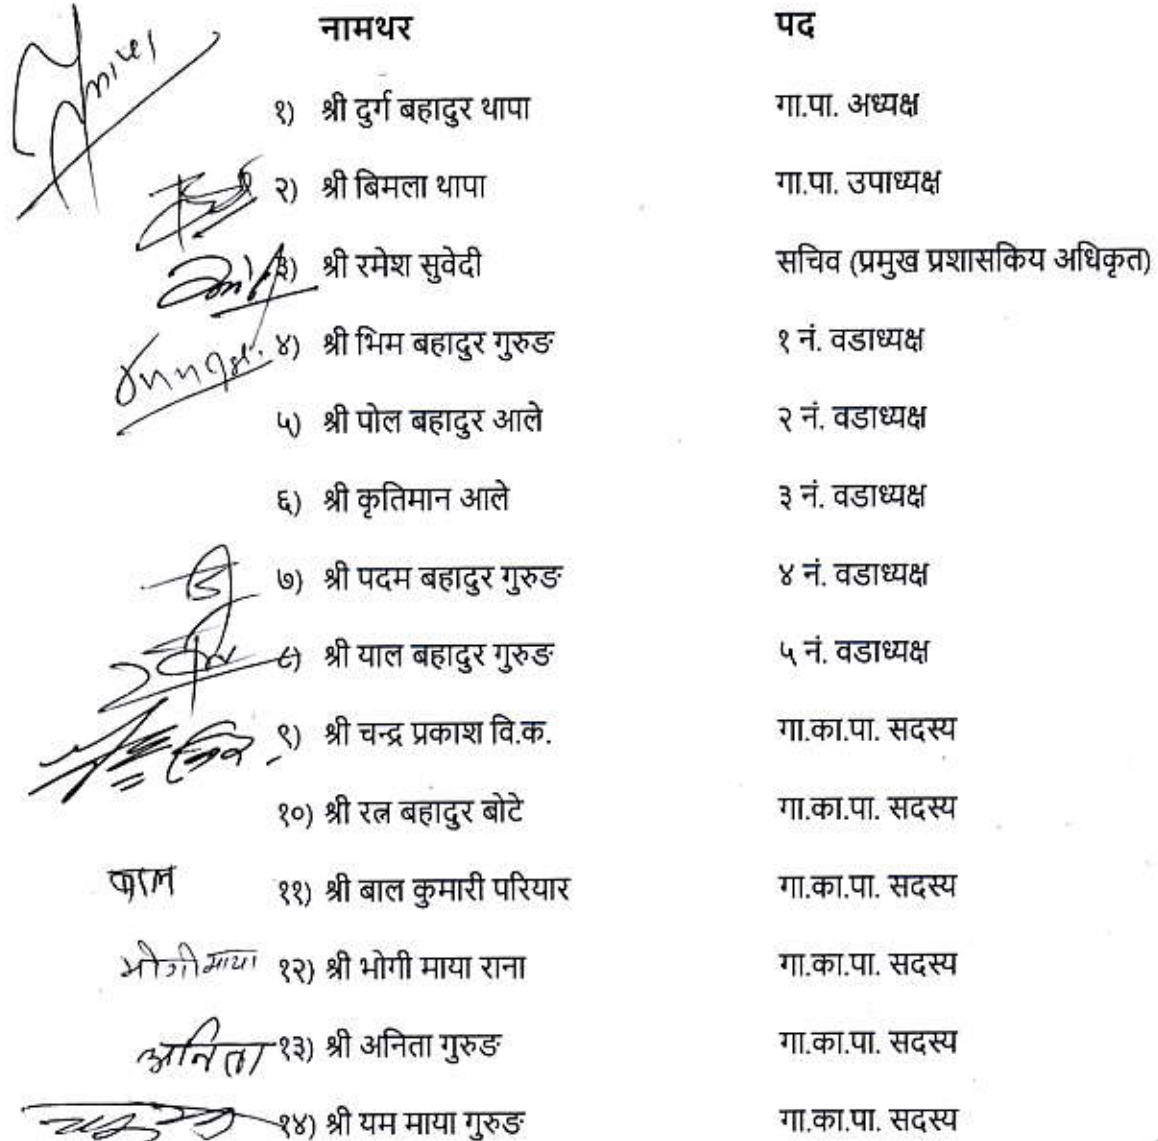 नामथर पद
१) श्री दुर्ग बहादुर थापा गा.पा. अध्यक्ष
२) श्री बिमला थापा गा.पा. उपाध्यक्ष
३) श्री रमेश सुवेदी सचिव (प्रमुख प्रशासकिय अधिकृत)
४) श्री भिम बहादुर गुरुङ १ नं. वडाध्यक्ष
५) श्री पोल बहादुर आले २ नं. वडाध्यक्ष
६) श्री कृतिमान आले ३ नं. वडाध्यक्ष
७) श्री पदम बहादुर गुरुङ ४ नं. वडाध्यक्ष
८) श्री याल बहादुर गुरुङ ५ नं. वडाध्यक्ष
९) श्री चन्द्र प्रकाश वि.क. गा.का.पा. सदस्य
१०) श्री रत्न बहादुर बोटे गा.का.पा. सदस्य
बाल ११) श्री बाल कुमारी परियार गा.का.पा. सदस्य
भोगी माया १२) श्री भोगी माया राना गा.का.पा. सदस्य
अनिता १३) श्री अनिता गुरुङ गा.का.पा. सदस्य
१४) श्री यम माया गुरुङ गा.का.पा. सदस्य